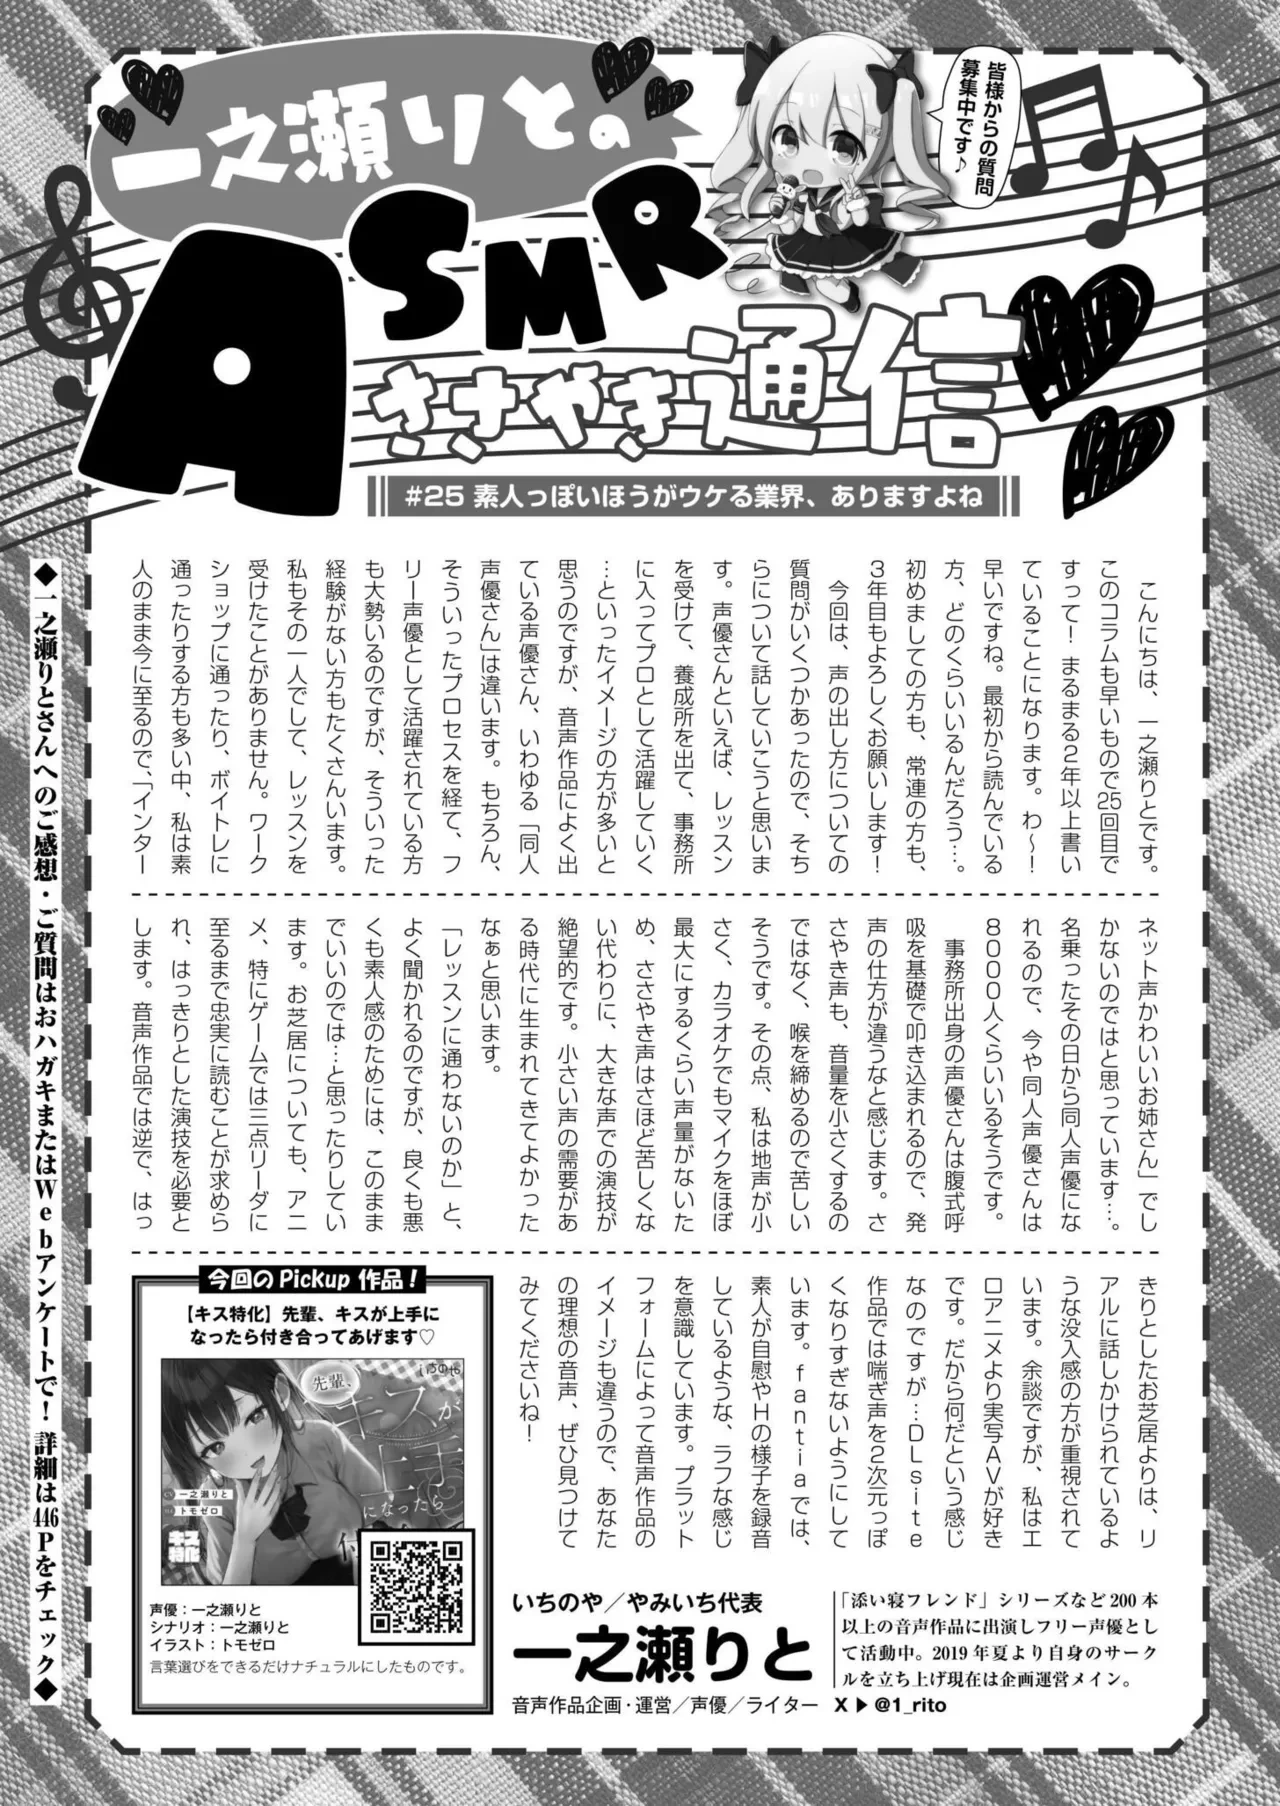 一之瀬りとの
ASMR
ささやき通信
皆様からの質問
募集中です♪
#25 素人っぽいほうがウケる業界、ありますよね
こんにちは、一之瀬りとです。
このコラムも早いもので25回目で
すって！ まるまる2年以上書い
ていることになります。わ〜！
早いですね。最初から読んでいる
方、どのくらいいるんだろう…。
初めましての方も、常連の方も、
3年目もよろしくお願いします！
今回は、声の出し方についての
質問がいくつかあったので、そち
らについて話していこうと思いま
す。声優さんといえば、レッスン
を受けて、養成所を出て、事務所
に入ってプロとして活躍していく
…といったイメージの方が多いと
思うのですが、音声作品によく出
ている声優さん、いわゆる「同人
声優さん」は違います。もちろん、
そういったプロセスを経て、フ
リー声優として活躍されている方
も大勢いるのですが、そういった
経験がない方もたくさんいます。
私もその一人でして、レッスンを
受けたことがありません。ワーク
ショップに通ったり、ボイトレに
通ったりする方も多い中、私は素
人のまま今に至るので、「インター
ネット声かわいいお姉さん」でし
かないのではと思っています…。
名乗ったその日から同人声優にな
れるので、今や同人声優さんは
8000人くらいいるそうです。
事務所出身の声優さんは腹式呼
吸を基礎で叩き込まれるので、発
声の仕方が違うなと感じます。さ
さやき声も、音量を小さくするの
ではなく、喉を締めるので苦しい
そうです。その点、私は地声が小
さく、カラオケでもマイクをほぼ
最大にするくらい声量がないた
め、ささやき声はさほど苦しくな
い代わりに、大きな声での演技が
絶望的です。小さい声の需要があ
る時代に生まれてきてよかった
なぁと思います。
「レッスンに通わないのか」と、
よく聞かれるのですが、良くも悪
くも素人感のためには、このまま
でいいのでは…と思ったりしてい
ます。お芝居についても、アニ
メ、特にゲームでは三点リーダに
至るまで忠実に読むことが求めら
れ、はっきりとした演技を必要と
します。音声作品では逆で、はっ
きりとしたお芝居よりは、リ
アルに話しかけられているよ
うな没入感の方が重視されて
います。余談ですが、私はエ
ロアニメより実写AVが好き
です。だから何だという感じ
なのですが…DLsite
作品では喘ぎ声を2次元っぽ
くなりすぎないようにして
います。fantiaでは、
素人が自慰やHの様子を録音
しているような、ラフな感じ
を意識しています。プラット
フォームによって音声作品の
イメージも違うので、あなた
の理想の音声、ぜひ見つけて
みてくださいね！
今回のPickup 作品！
【キス特化】先輩、キスが上手に
なったら付き合ってあげます♡
いちのや
先輩、
キスが
上手
になったら
CV 一之瀬りと
トモゼロ
キス
特化
声優：一之瀬りと
シナリオ：一之瀬りと
イラスト：トモゼロ
言葉選びをできるだけナチュラルにしたものです。
いちのや／やみいち代表
一之瀬りと
音声作品企画・運営／声優／ライター
「添い寝フレンド」シリーズなど200本
以上の音声作品に出演しフリー声優とし
て活動中。2019年夏より自身のサーク
ルを立ち上げ現在は企画運営メイン。
X▶@1_rito
◆一之瀬りとさんへのご感想・ご質問はおハガキまたはWebアンケートで！ 詳細は446Pをチェック◆